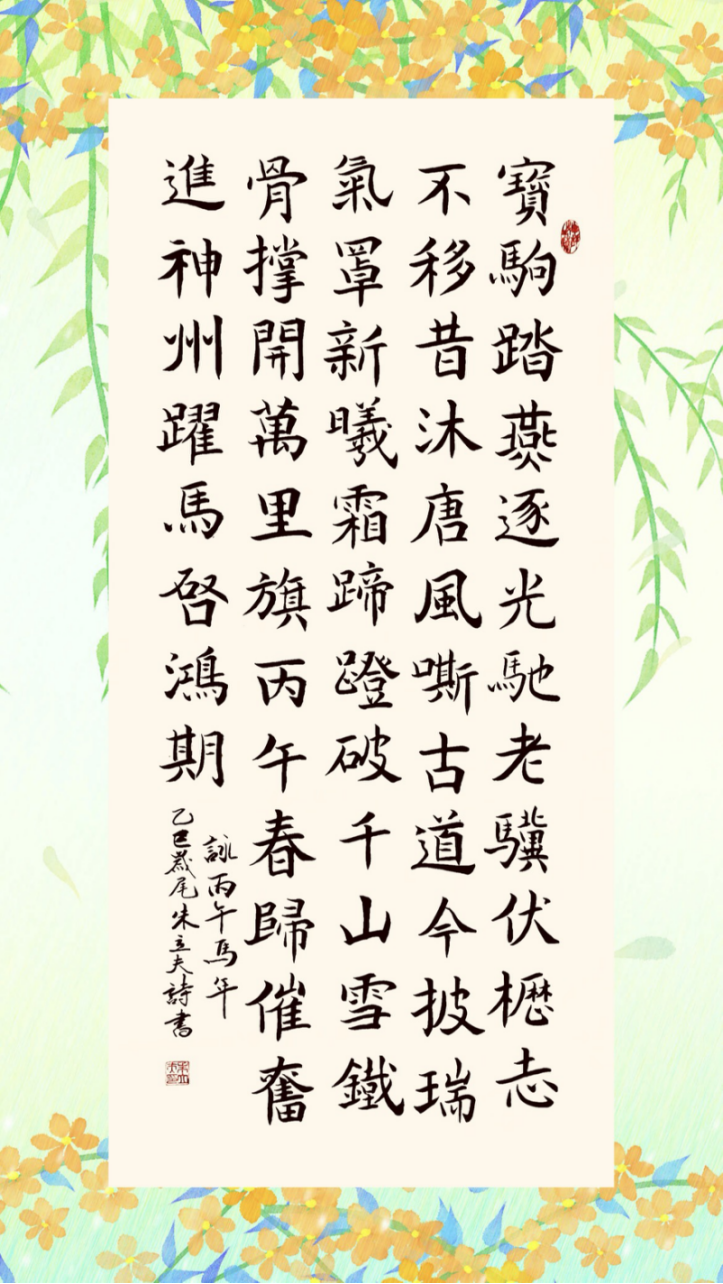 寶駒踏燕逐光馳老驥伏櫪志
不移昔沐唐風嘶古道今披瑞
氣罩新曦霜蹄蹬破千山雪鐵
骨撐開萬里旗丙午春歸催奮
進神州躍馬啓鴻期
詠丙午馬年
乙巳歲尾朱立夫詩書